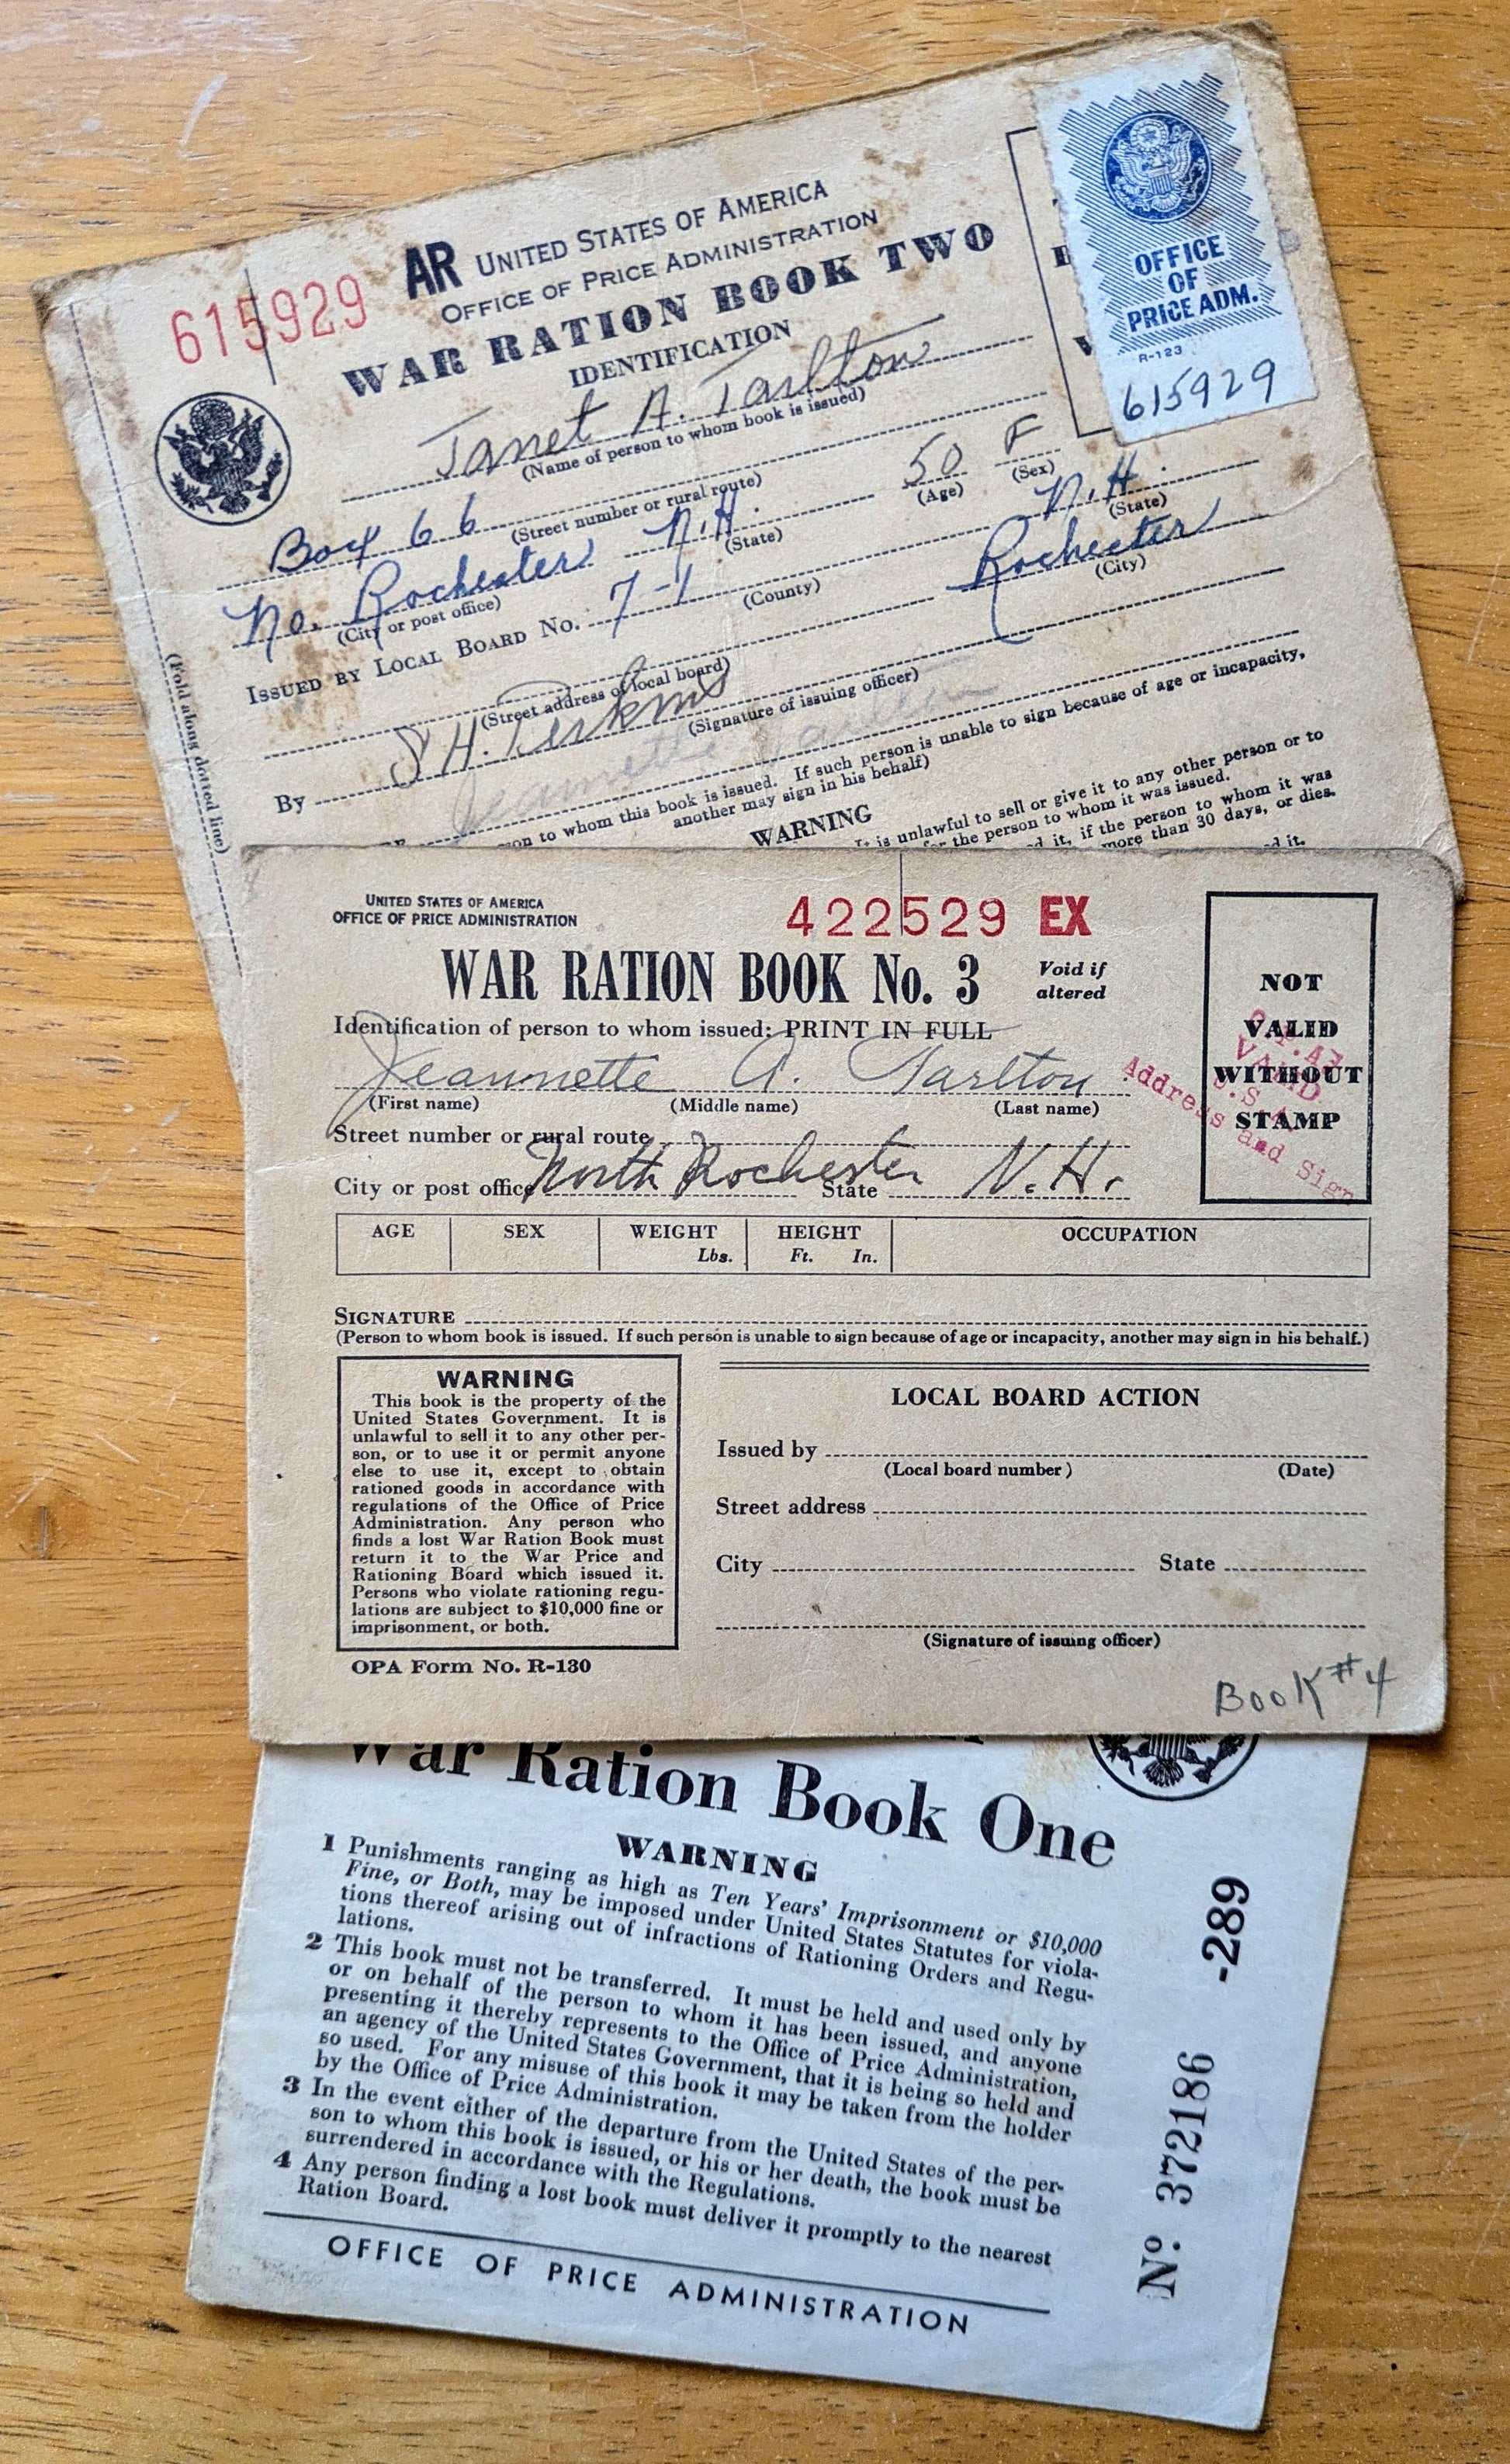 AR
UNITED STATES OF AMERICA
OFFICE OF PRICE ADMINISTRATION
615929
WAR RATION BOOK TWO
IDENTIFICATION
OFFICE
OF
PRICE ADM.
R-123
615929
Janet A. Tarlton
(Name of person to whom book is issued)
Box 66
(Street number or rural route)
50 F
(Age) (Sex)
No. Rochester N.H.
(City or post office) (State)
ISSUED BY LOCAL BOARD No. 7-1
(County)
N.H.
(State)
Rochester
(City)
(Street address of local board)
By S H. Perkins
(Signature of issuing officer)
Jeannette Tarlton
on to whom this book is issued. If such person is unable to sign because of age or incapacity,
another may sign in his behalf)
WARNING
It is unlawful to sell or give it to any other person or to
for the person to whom it was issued.
it, if the person to whom it was
more than 30 days, or dies.
it.
(Fold along dotted line)
UNITED STATES OF AMERICA
OFFICE OF PRICE ADMINISTRATION
422529 EX
WAR RATION BOOK No. 3
Void if
altered
Identification of person to whom issued: PRINT IN FULL
Jeannette A. Tarlton
(First name) (Middle name) (Last name)
Street number or rural route
City or post office North Rochester State N.H.
NOT
VALID
WITHOUT
STAMP
VALID
Address and Sign
AGE SEX WEIGHT HEIGHT OCCUPATION
Lbs. Ft. In.
SIGNATURE
(Person to whom book is issued. If such person is unable to sign because of age or incapacity, another may sign in his behalf.)
WARNING
This book is the property of the
United States Government. It is
unlawful to sell it to any other per-
son, or to use it or permit anyone
else to use it, except to obtain
rationed goods in accordance with
regulations of the Office of Price
Administration. Any person who
finds a lost War Ration Book must
return it to the War Price and
Rationing Board which issued it.
Persons who violate rationing regu-
lations are subject to $10,000 fine or
imprisonment, or both.
OPA Form No. R-130
LOCAL BOARD ACTION
Issued by
(Local board number) (Date)
Street address
City State
(Signature of issuing officer)
BOOK #4
War Ration Book One
WARNING
1 Punishments ranging as high as Ten Years' Imprisonment or $10,000
Fine, or Both, may be imposed under United States Statutes for viola-
tions thereof arising out of infractions of Rationing Orders and Regu-
lations.
2 This book must not be transferred. It must be held and used only by
or on behalf of the person to whom it has been issued, and anyone
presenting it thereby represents to the Office of Price Administration,
an agency of the United States Government, that it is being so held and
so used. For any misuse of this book it may be taken from the holder
by the Office of Price Administration.
3 In the event either of the departure from the United States of the per-
son to whom this book is issued, or his or her death, the book must be
surrendered in accordance with the Regulations.
4 Any person finding a lost book must deliver it promptly to the nearest
Ration Board.
OFFICE OF PRICE ADMINISTRATION
Nº 372186 -289